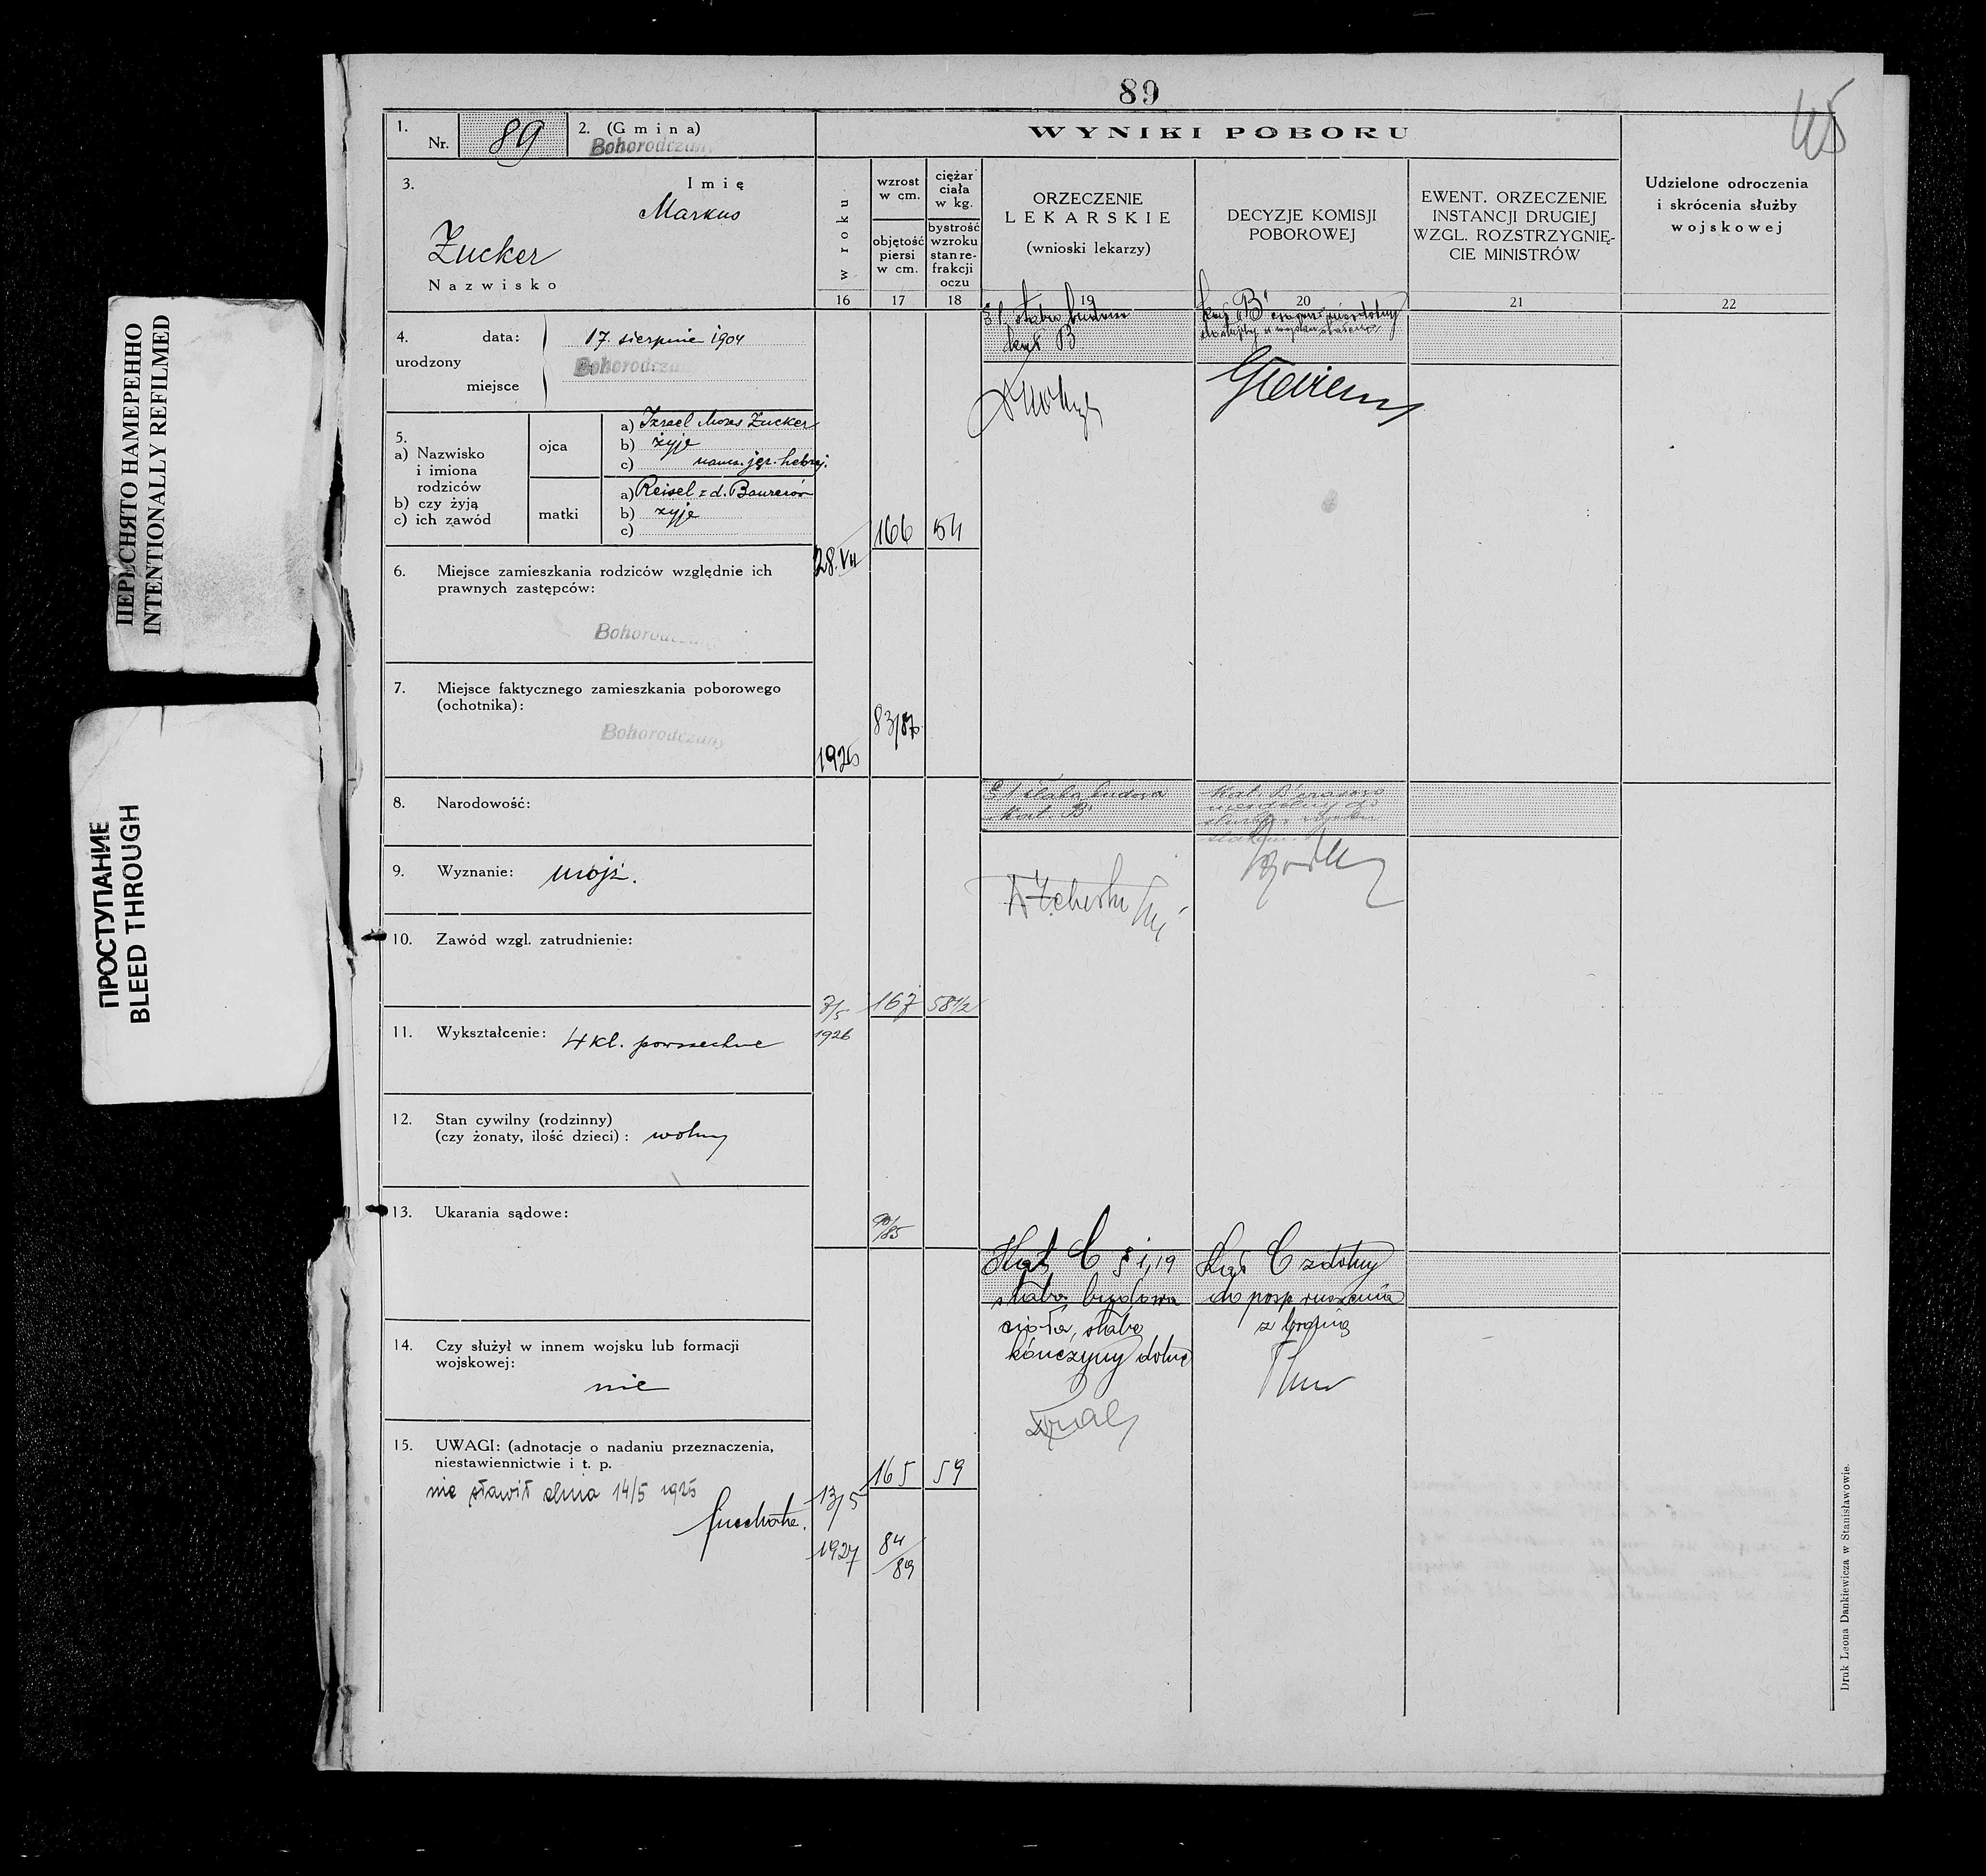 ПЕРЕСНЯТО НАМЕРЕННО
INTENTIONALLY REFILMED
ПРОСТУПАНИЕ
BLEED THROUGH
89
45
1. Nr. 89
2. (Gmina)
Bohorodczany
3. Imię
Markus
Zucker
Nazwisko
4. urodzony
data: 17. sierpnia 1904
miejsce Bohorodczany
5.
a) Nazwisko
i imiona
rodziców
b) czy żyją
c) ich zawód
ojca
a) Izrael Moses Zucker
b) żyje
c) naucz. jęz. hebraj.
matki
a) Reisel z d.
b) żyje
c)
6. Miejsce zamieszkania rodziców względnie ich
prawnych zastępców:
Bohorodczany
7. Miejsce faktycznego zamieszkania poborowego
(ochotnika):
Bohorodczany
8. Narodowość:
9. Wyznanie: mojż.
10. Zawód wzgl. zatrudnienie:
11. Wykształcenie: 4 kl. powszechne
12. Stan cywilny (rodzinny)
(czy żonaty, ilość dzieci): wolny
13. Ukarania sądowe:
14. Czy służył w innem wojsku lub formacji
wojskowej:
nie
15. UWAGI: (adnotacje o nadaniu przeznaczenia,
niestawiennictwie i t. p.
nie stawił dnia 14/5 1925
WYNIKI POBORU
w roku
16
wzrost
w cm.
objętość
piersi
w cm.
17
ciężar
ciała
w kg.
bystrość
wzroku
stan re-
frakcji
oczu
18
ORZECZENIE
LEKARSKIE
(wnioski lekarzy)
19
DECYZJE KOMISJI
POBOROWEJ
20
EWENT. ORZECZENIE
INSTANCJI DRUGIEJ
WZGL. ROZSTRZYGNIĘ-
CIE MINISTRÓW
21
Udzielone odroczenia
i skrócenia służby
wojskowej
22
słaba budowa
kat B
kat "B" czasowo niezdolny
28.VII
166 54
83/87
1925
słaba budowa
Kat. B
kat. B czasowo
niezdolny do
7/5 167 58 1/2
1926
90/85
Kat C § i, 19
słaba budowa
ciała, słabe
kończyny dolne
Kat C zdolny
do posp. ruszenia
z bronią
13/5 165 59
1927 84/89
Druk Leona Dankiewicza w Stanisławowie.